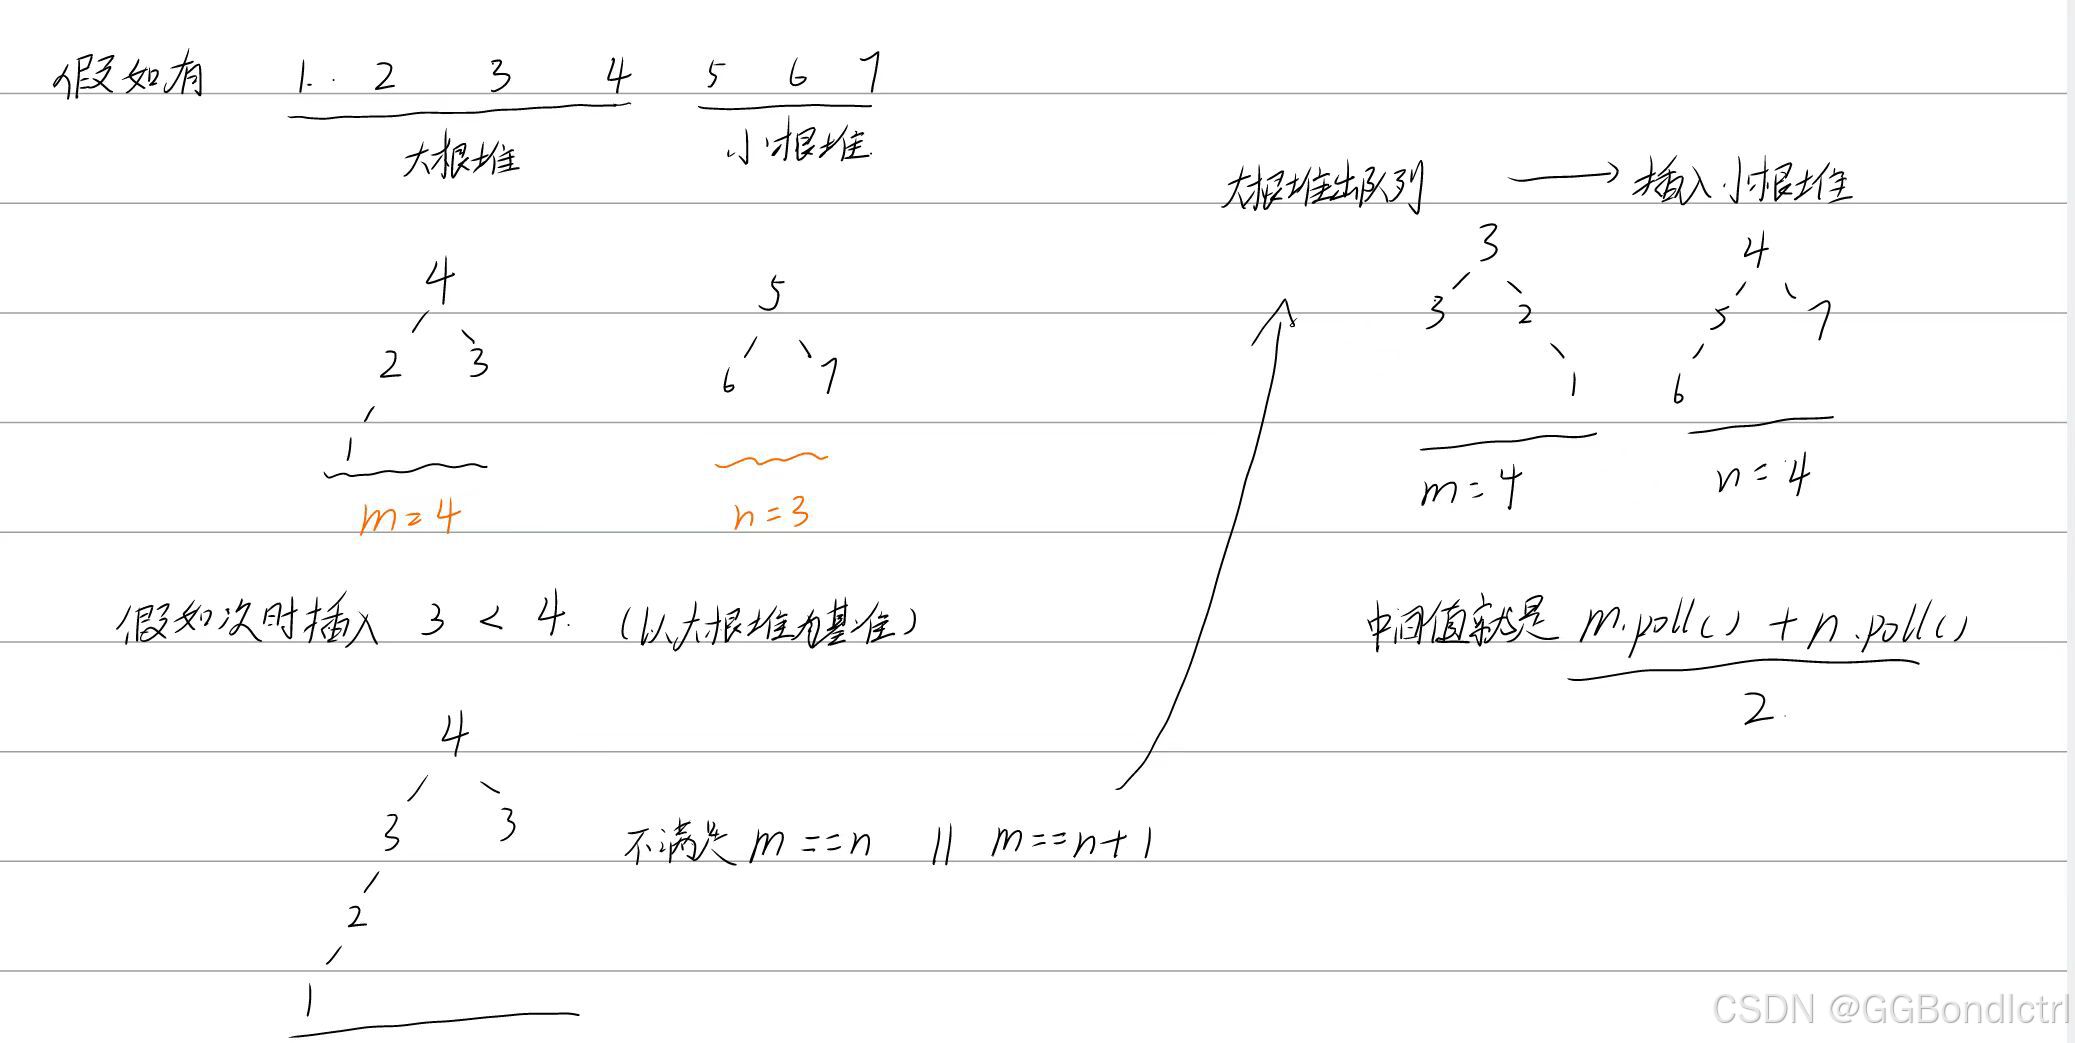 假如有 1. 2 3 4 5 6 7
大根堆 小根堆
4
2 3
1
5
6 7
m=4 n=3
假如次时插入 3 < 4. (以大根堆为基准)
4
3 3
2
1
不满足 m==n || m==n+1
大根堆出队列 → 插入小根堆
3
3 2
1
4
5 7
6
m=4 n=4
中间值就是 m.poll() + n.poll()
2
CSDN @GGBondlctrl